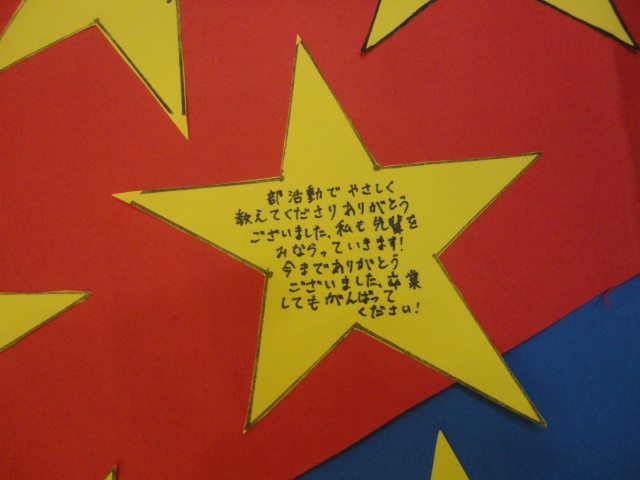 部活動でやさしく
教えてくださりありがとう
ございました、私も先輩を
みならっていきます!
今までありがとう
ございました、卒業
してもがんばって
ください!